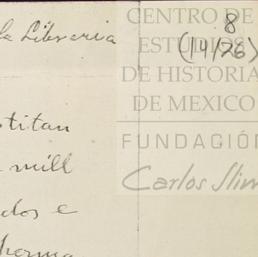 CENTRO DE
ESTUDIOS
DE HISTORIA
DE MEXICO
FUNDACIÓN
Carlos Slim
8
(14/26)
la Libreria
titan
mill
dos e